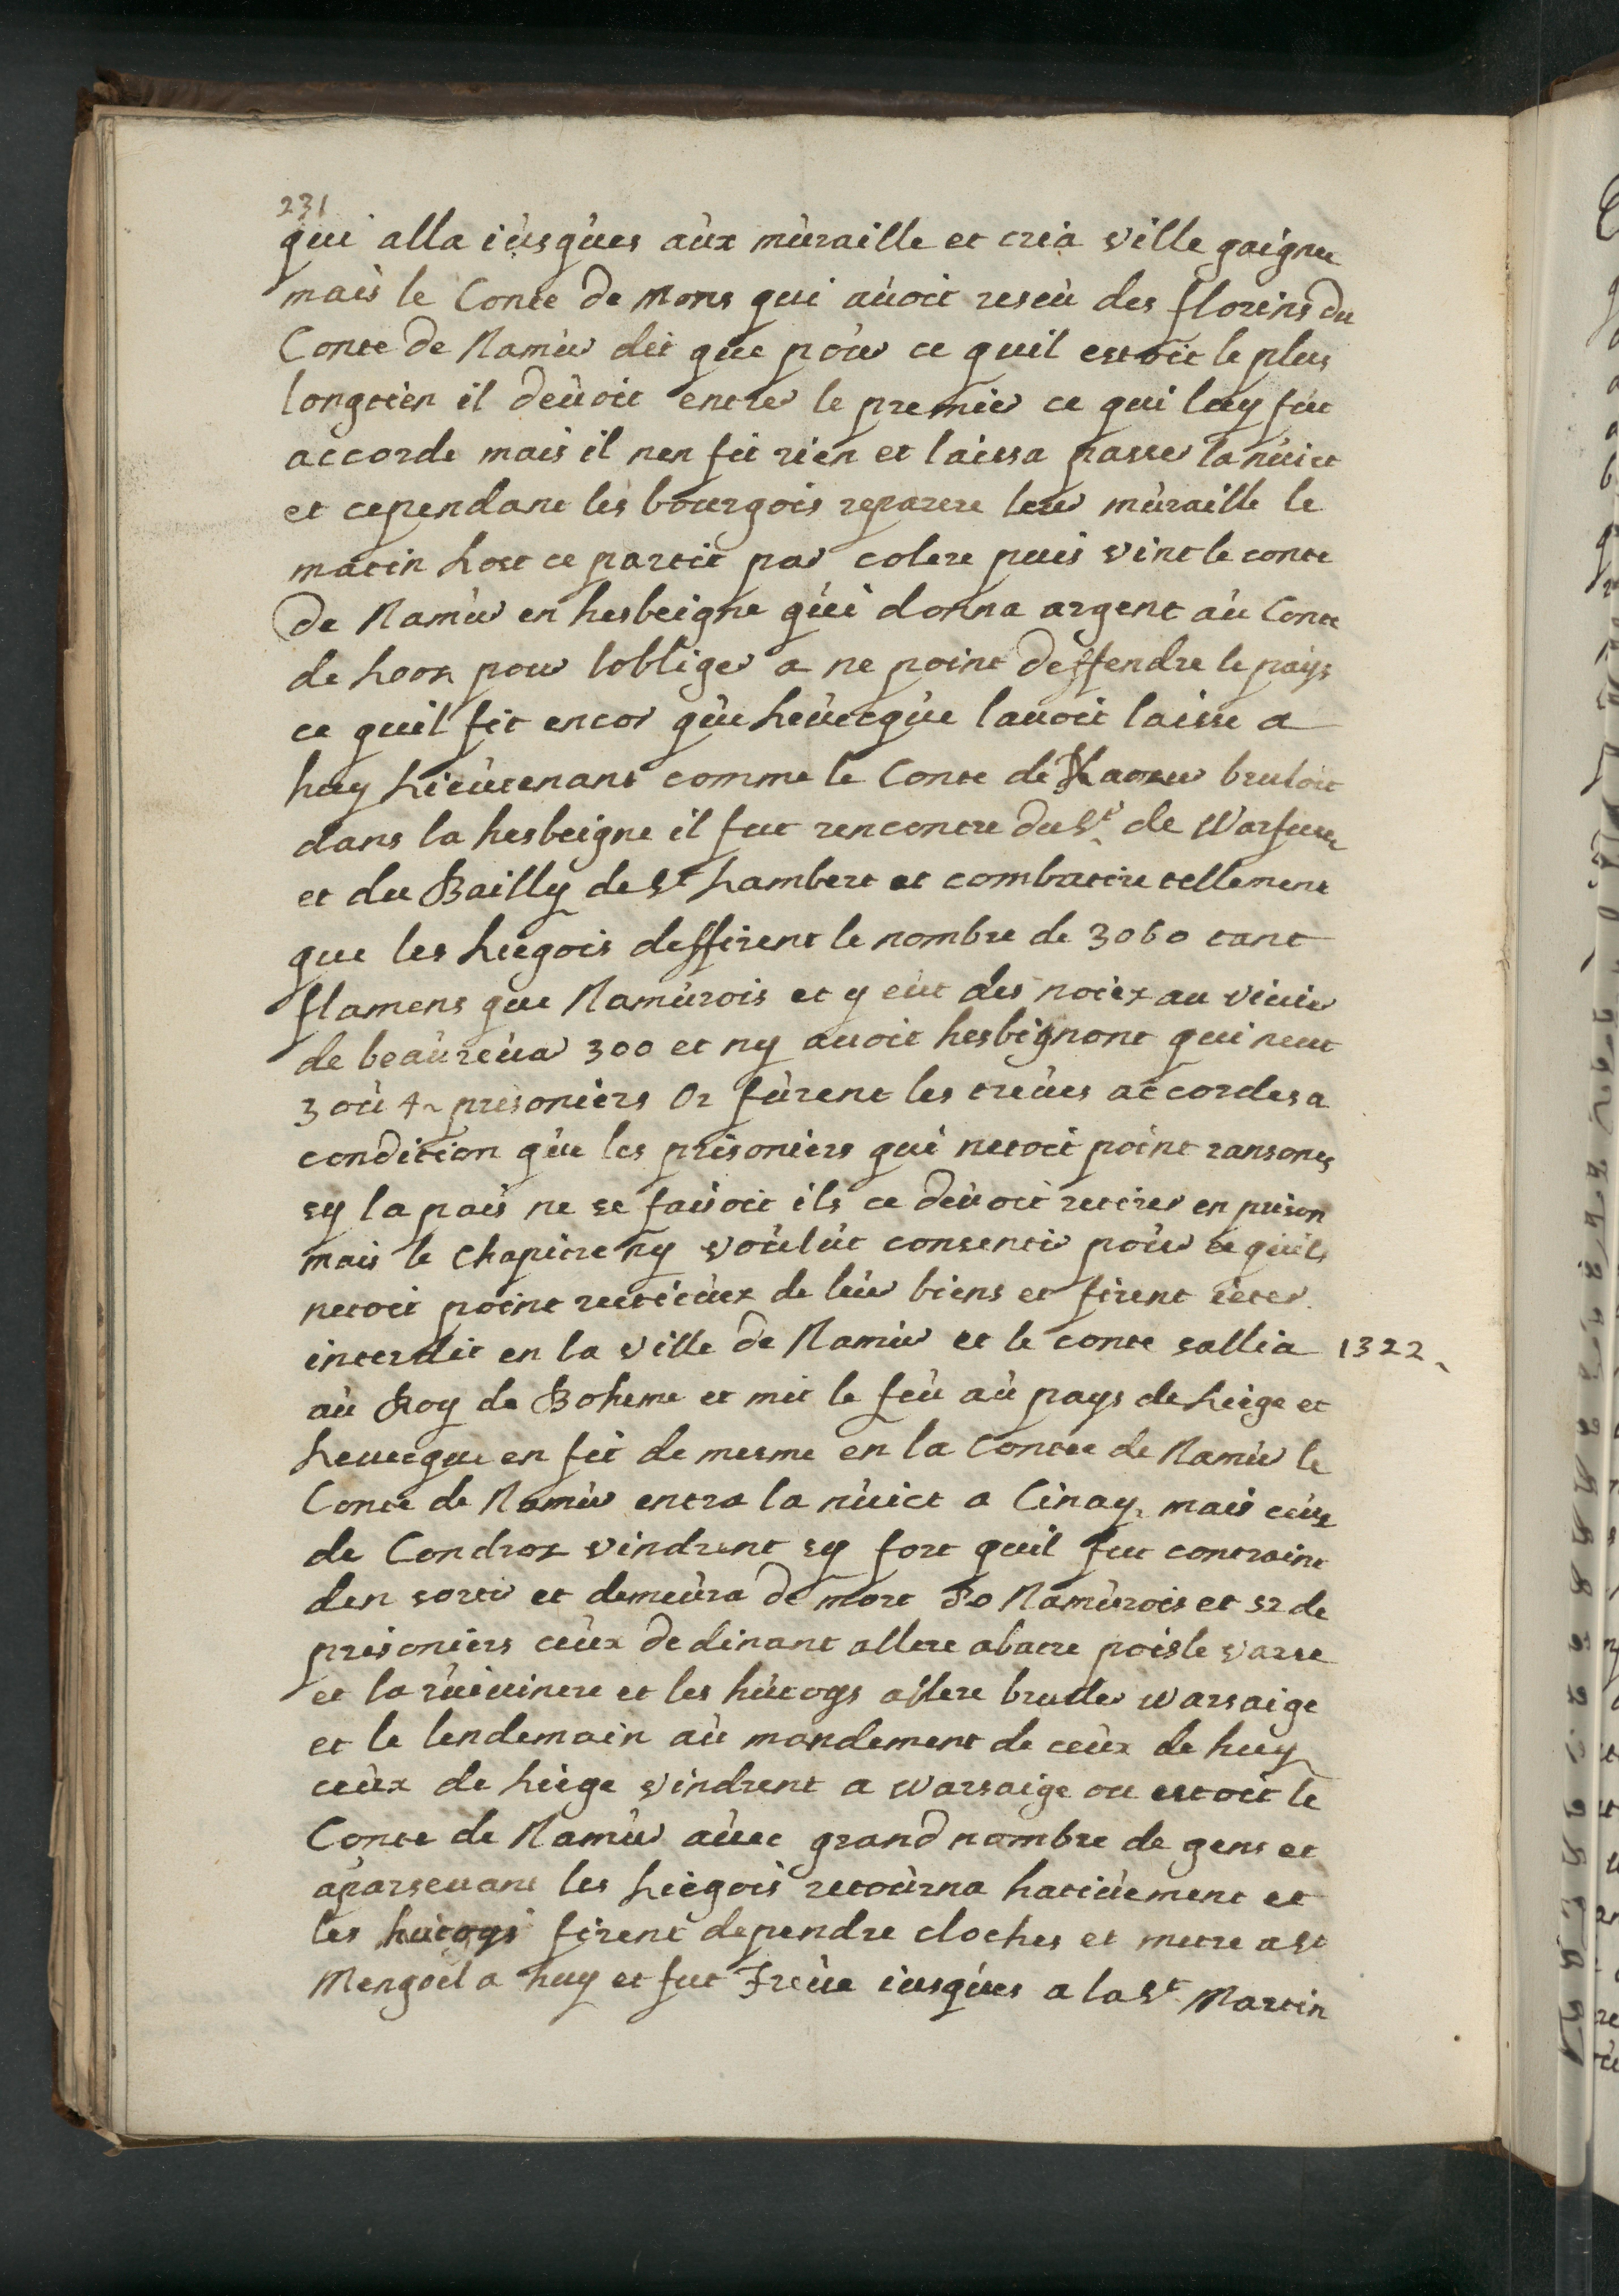 231
qui alla iùsqùes aùx mùraille et cria ville gaignee
mais le Conte de Mons qui aùoit reseù des florins du
Conte de Namùr dit que poùr ce quil estoit le plus
longtien il deùoit entrer le premier ce qui luy fut
accorde mais il nen fit rien et laissa passer la nùict
et cependant les bourgois reparere leur mùraille le
matin host ce partit par colere puis vint le conte
de Namùr en hesbeigne qùi donna argent aù Conte
de Looz pour lobliger a ne point deffendre le pays
ce quil fit encor qùe Leùecqùe lauoit laisse a
huy Lieùtenant comme le Conte de Namur bruloit
dans la hesbeigne il fut rencontre du Sr de Warfusee
et du Bailly de St Lambert et combattire tellement
que les Liegois deffirent le nombre de 3060 tant
flamens que Namùrois et y eùt des noiez au viuier
de beaùreùar 300 et ny auoit hesbignont qui neut
3 où 4 prisoniers Or fùrent les treùes accordes a
condition qùe les prisoniers qui netoit point ransones
sy la pais ne se faisoit ils ce deùoit retirer en prison
mais le Chapitre ny voùlùt consentir poùr ce quils
netoit point restitùez de leùr biens et firent ieter
interdit en la ville de Namùr et le conte sallia 1322
aù Roy de Boheme et mit le feù aù pays de Liège et
Leuecque en fit de mesme en la Contee de Namùr le
Conte de Namùr entra la nùict a Cinay mais ceùx
de Condroz vindrent sy fort quil fut contraint
den sortir et demeùra de mort 80 Namùrois et 52 de
prisoniers ceùx de dinant allere abatre poisle varse
et la rùiuinere et les hùtoys allere bruller warsaige
et le lendemain aù mandement de ceùx de huy
ceùx de Liège vindrent a warsaige ou estoit le
Conte de Namùr aùec grand nombre de gens et
aparseuant les Liègois retoùrna hatiùement et
les hùtoys firent dependre cloches et metre a St
Mengoel a huy et fut Treùe iusqùes a la St Martin